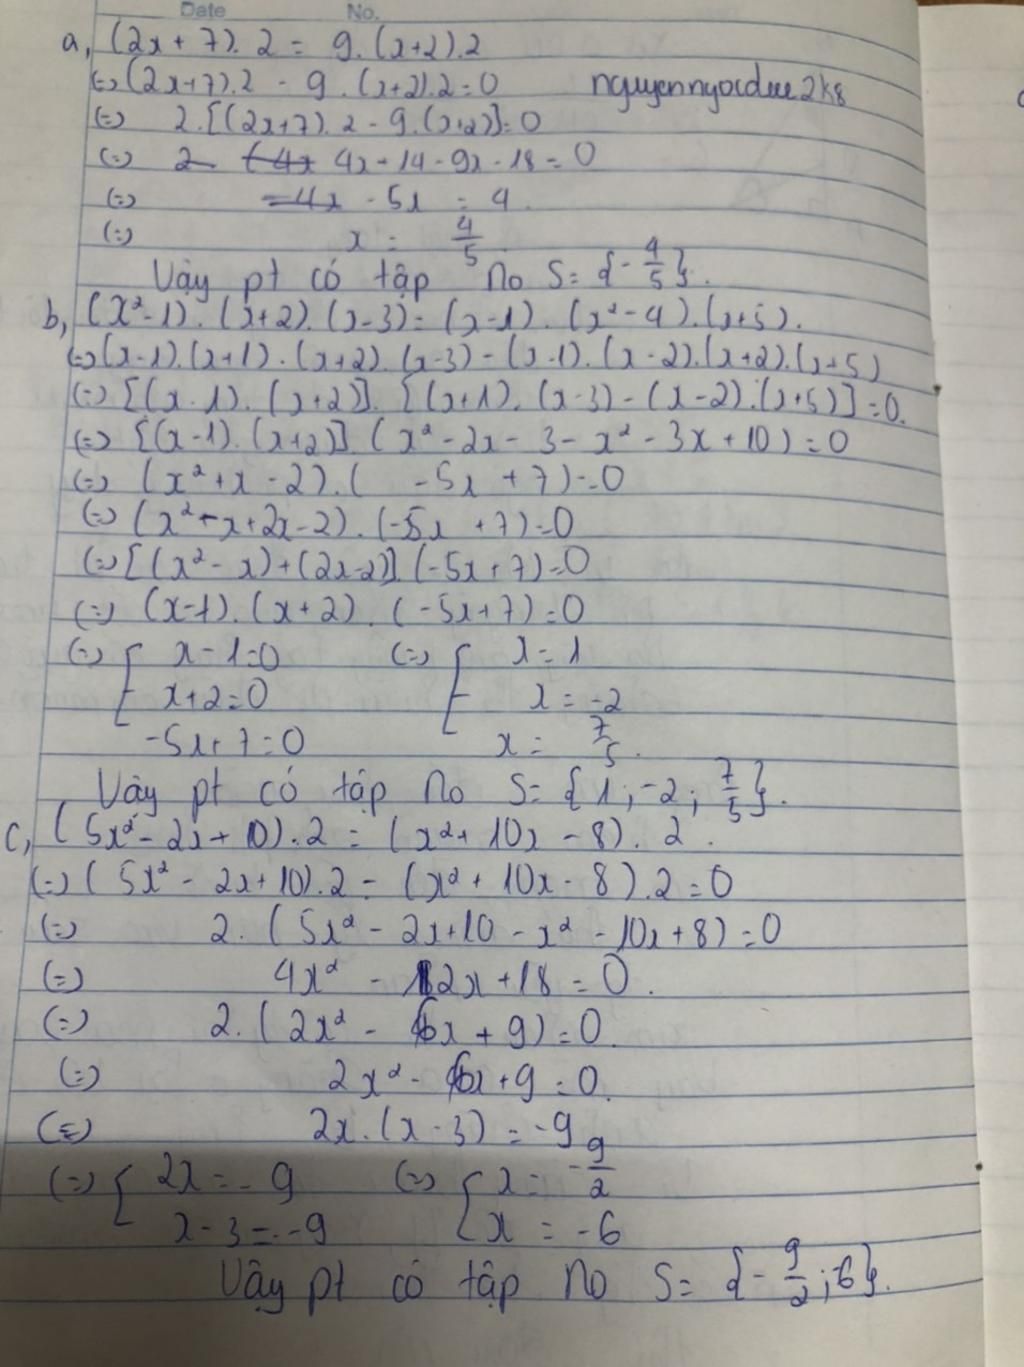 Date No.
a, (2x + 7). 2 = 9. (x+2). 2
(=) (2x+7). 2 - 9. (x+2). 2 = 0 nguyenngocduc2k8
(=) 2. [(2x+7). 2 - 9. (x+2)] = 0
(=) 4x + 14 - 9x - 18 = 0
(=) - 5x = 4
(=) x = 4/5
Vậy pt có tập no S = {- 4/5}.
b, (x² - 1). (x+2). (x-3) = (x-1). (x² - 4). (x+5).
(=) (x-1). (x+1). (x+2). (x-3) - (x-1). (x-2). (x+2). (x+5)
(=) [(x-1). (x+2)]. [(x+1). (x-3) - (x-2). (x+5)] = 0.
(=) [(x-1). (x+2)]. (x² - 2x - 3 - x² - 3x + 10) = 0
(=) (x² + x - 2). ( - 5x + 7) = 0
(=) (x² - x + 2x - 2). (-5x + 7) = 0
(=) [(x² - x) + (2x-2)]. (-5x+7) = 0
(=) (x-1). (x+2). (-5x+7) = 0
(=) [ x - 1 = 0 (=) [ x = 1
x + 2 = 0 x = -2
-5x + 7 = 0 x = 7/5.
Vậy pt có tập no S = {1; -2; 7/5}.
c, (5x² - 2x + 10). 2 = (x² + 10x - 8). 2.
(=) (5x² - 2x + 10). 2 - (x² + 10x - 8). 2 = 0
(=) 2. (5x² - 2x + 10 - x² - 10x + 8) = 0
(=) 4x² - 12x + 18 = 0.
(=) 2. (2x² - 6x + 9) = 0.
(=) 2x² - 6x + 9 = 0.
(=) 2x. (x - 3) = -9
(=) [ 2x = - 9 (=) [ x = - 9/2
x - 3 = -9 x = -6
Vậy pt có tập no S = {- 9/2; -6}.